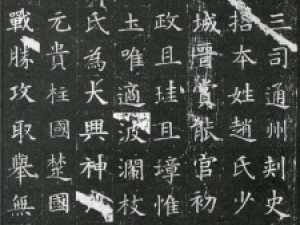 三司通州刾史
捨本姓趙氏少
城賞能官初
政且珪且璋惟
土唯適波瀾枝
氏為大興神
元貴柱國楚國
戰勝攻取舉無